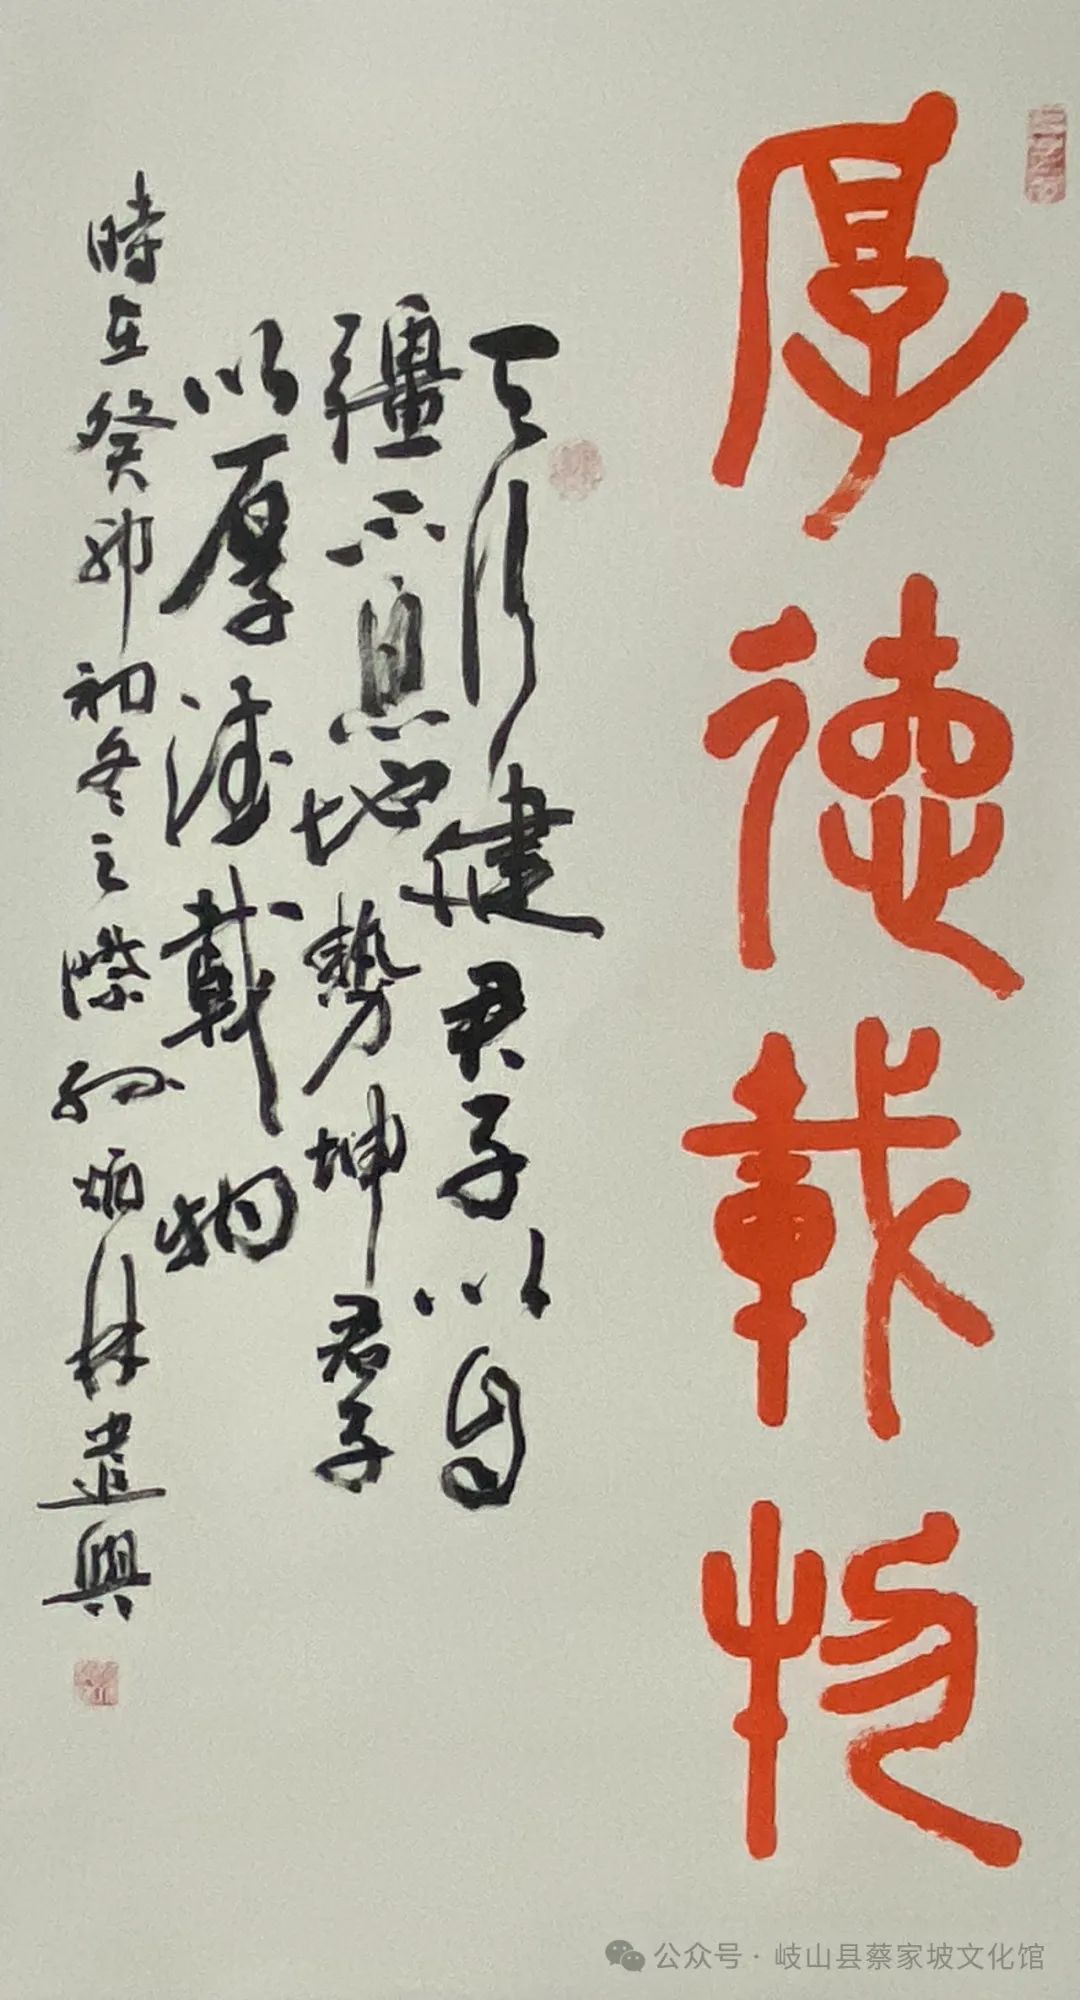 厚德載物
天行健君子以自
彊不息地勢坤君子
以厚德載物
時在癸卯初冬之際孫炳林遣興
公众号·岐山县蔡家坡文化馆